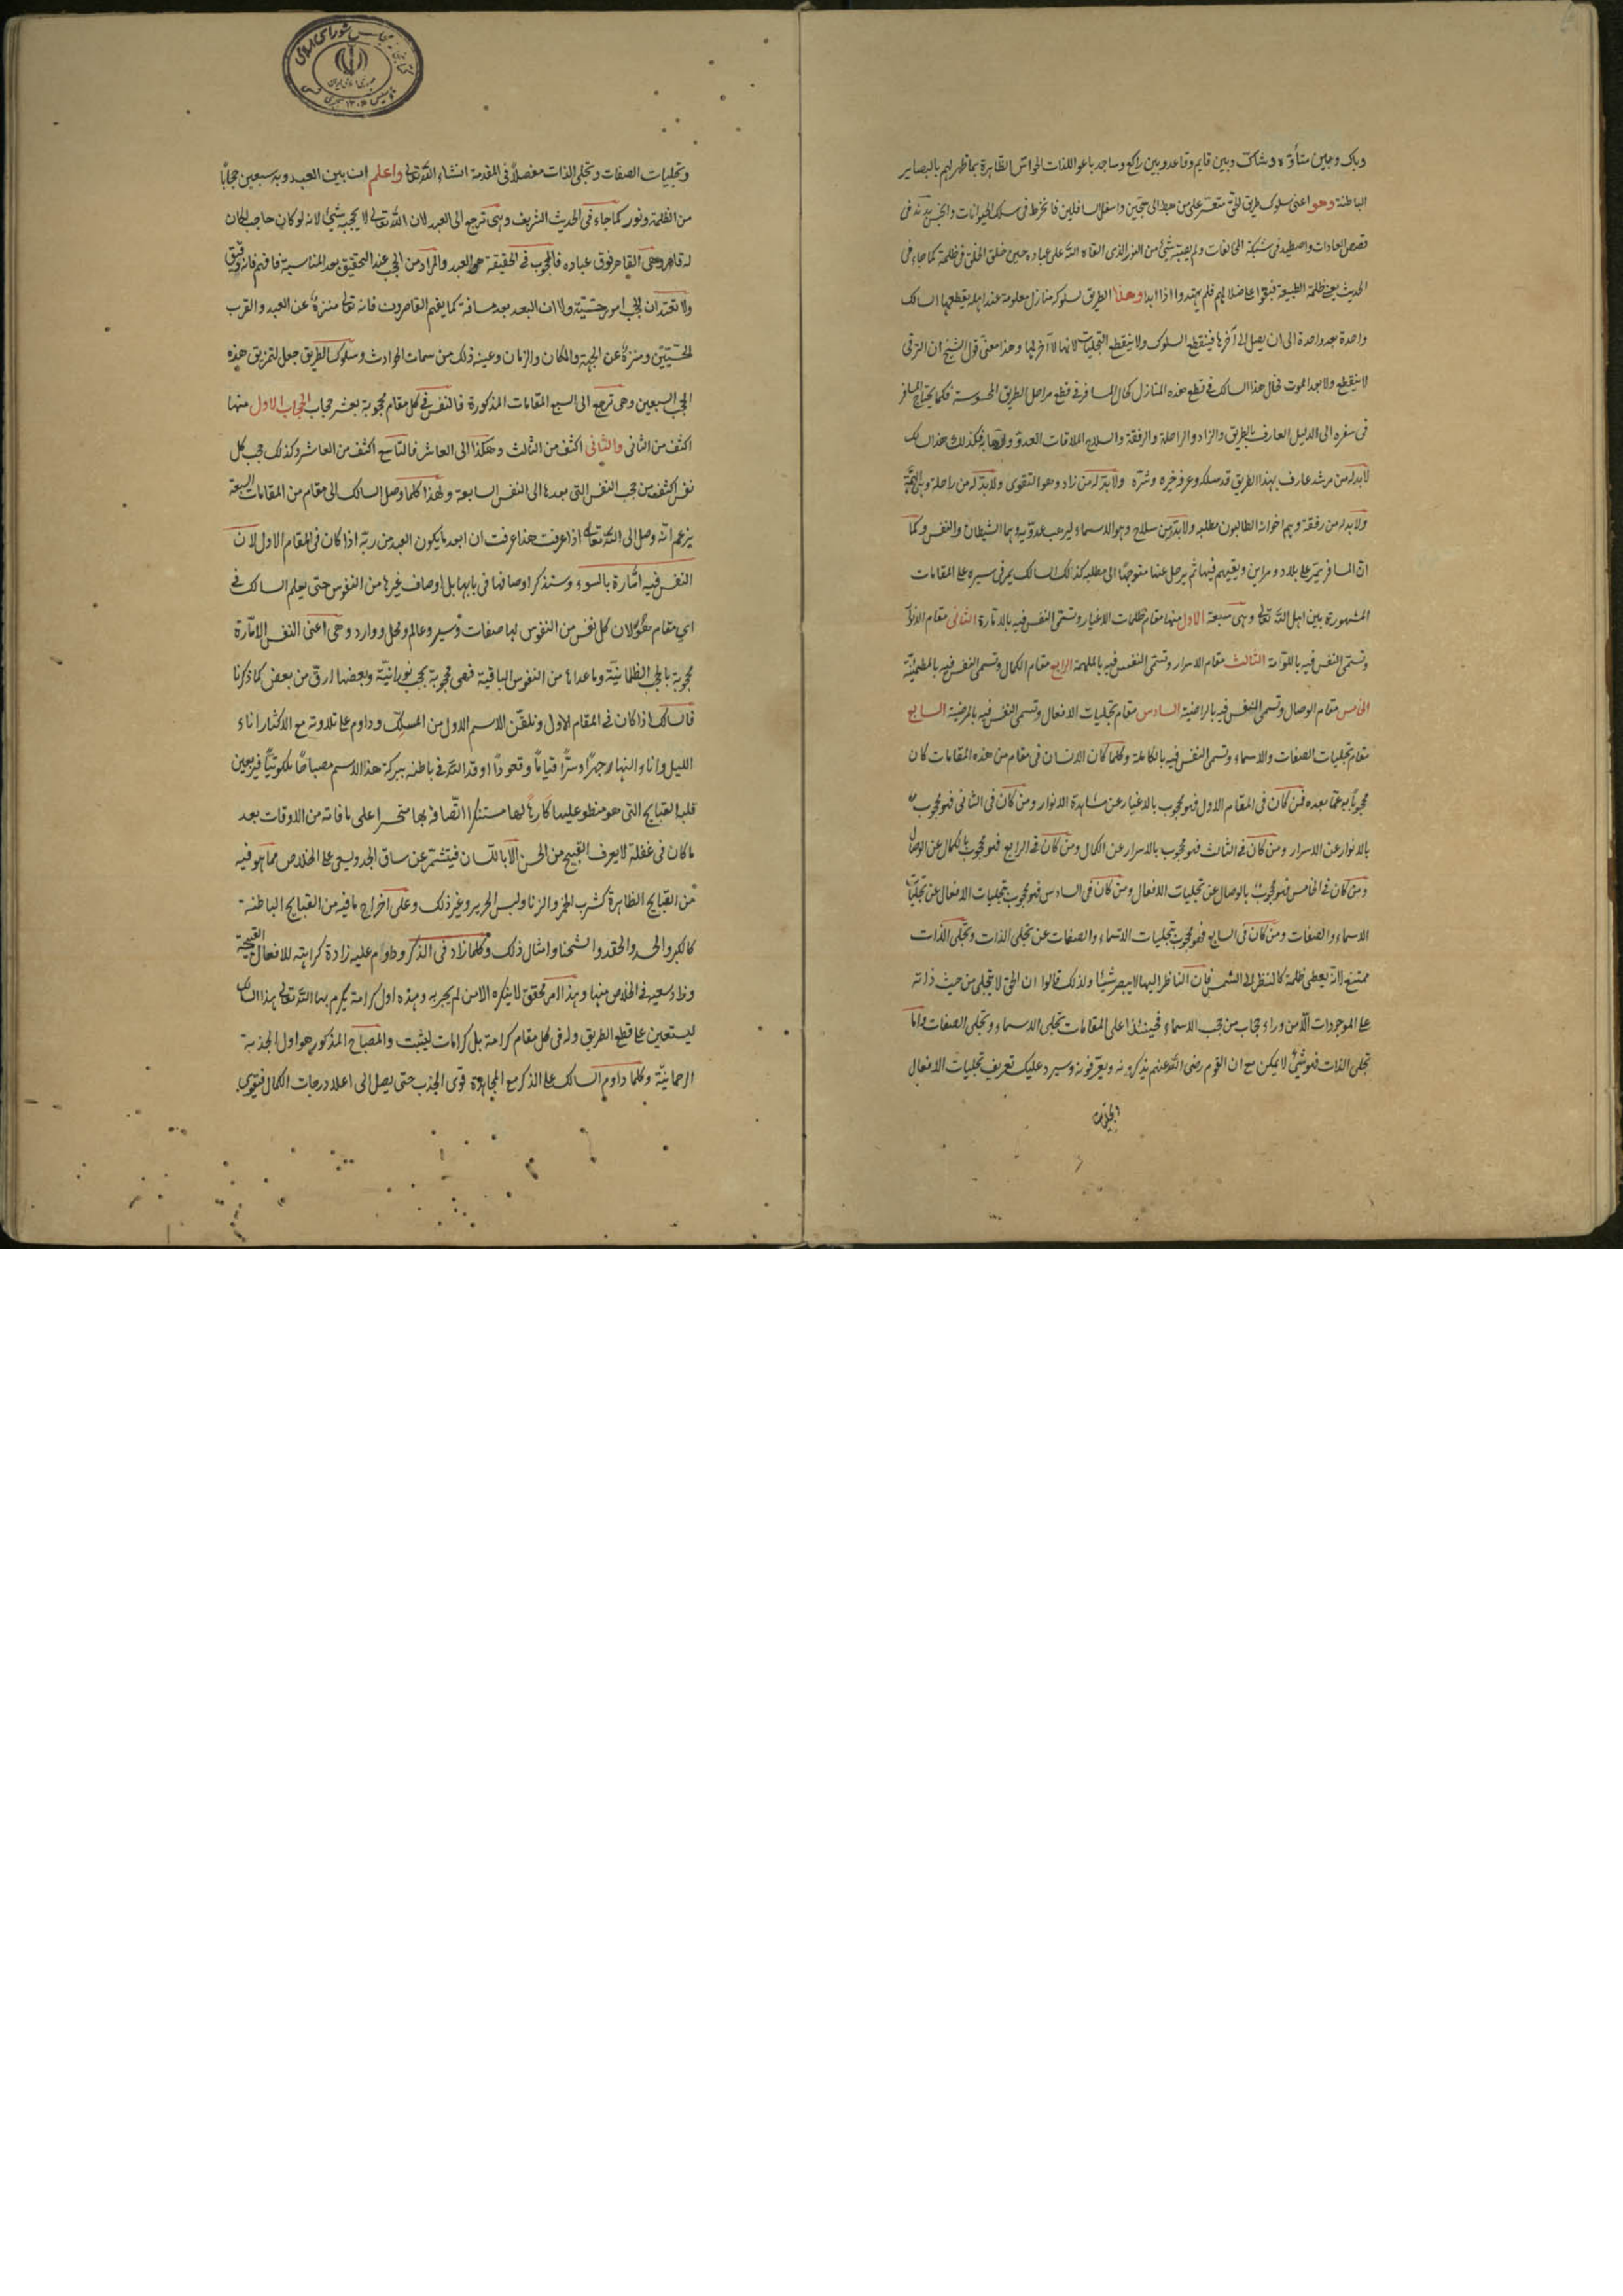 وباك وحين متأوّه وشاك وبين قايم وقاعد وبين راكع وساجد باعوا اللذات الحواس الظاهرة بما ظهر لهم بالبصاير
الباطنة وهو اعنى سلوك طريق الحق متعسر على من هبط الى سجين واسفل السافلين فانخرط فى سلك الحيوانات وانحبس
قفص العادات واصطيد فى شبكة المخالفات ولم يصبه شئ من النور الذى القاه الله على عباده حين خلق الخلق فى ظلمة كما جاء فى
الحديث يعنى ظلمة الطبيعة فبقوا على ضلالهم فلم يهتدوا اذا ابدا وهذا الطريق لسلوكه منازل معلومة عند اهله يقطعها السالك
واحدة بعد واحدة الى ان يصل الى آخرها فينقطع السلوك ولا ينقطع التجليات لانها لا آخر لها وهذا معنى قول الشيخ ان الترقى
لا ينقطع ولا بعد الموت فحال هذا السالك فى قطع هذه المنازل كحال المسافر فى قطع مراحل الطريق المحسوسة فكما يحتاج المسافر
فى سفره الى الدليل العارف بالطريق والزاد والراحلة والرفقة والسلاح لملاقات العدو فكذلك هذا السالك
لابد له من مرشد عارف بهذا الطريق قد سلكه وعرف خيره وشره ولابد له من زاد وهو التقوى ولابد له من راحلة وهى الهمّة
ولابد له من رفقة وهم اخوانه الطالبون مطلبه ولابد من سلاح وهو الاسماء ليرهب عدويه وهما الشيطان والنفس وكما
ان المسافر يمر على بلاد ومداين ويقيم فيها ثم يرحل عنها متوجها الى مطلبه كذلك السالك يمر فى سيره على المقامات
المشهورة بين اهل الله تعالى وهى سبعة الاول منها مقام ظلمات الاغيار وتسمى النفس فيه بالامّارة الثانى مقام الانوار
وتسمى النفس فيه باللوّامة الثالث مقام الاسرار وتسمى النفس فيه بالملهمة الرابع مقام الكمال وتسمى النفس فيه بالمطمئنة
الخامس مقام الوصال وتسمى النفس فيه بالراضية السادس مقام تجليات الافعال وتسمى النفس فيه بالمرضية السابع
مقام تجليات الصفات والاسماء وتسمى النفس فيه بالكاملة وكلما كان الانسان فى مقام من هذه المقامات كان
محجوبا به عما بعده فمن كان فى المقام الاول فهو محجوب بالاغيار عن مشاهدة الانوار ومن كان فى الثانى فهو محجوب
بالانوار عن الاسرار ومن كان فى الثالث فهو محجوب بالاسرار عن الكمال ومن كان فى الرابع فهو محجوب بالكمال عن الوصال
ومن كان فى الخامس فهو محجوب بالوصال عن تجليات الافعال ومن كان فى السادس فهو محجوب بتجليات الافعال عن تجليات
الاسماء والصفات ومن كان فى السابع فهو محجوب بتجليات الاسماء والصفات عن تجلى الذات وتجلى الذات
ممتنع لانه يعطى ظلمة كالنظر الى الشمس فان الناظر اليها لا يبصر شيئا ولذلك قالوا ان الحق لا يتجلى من حيث ذاته
على الموجودات الا من وراء حجاب من حجب الاسماء فحينئذ اعلى المقامات تجلى الاسماء وتجلى الصفات واما
تجلى الذات فهو شئ لا يمكن مع ان القوم رضى الله عنهم يذكرونه ويعرفونه وسيرد عليك تعريف تجليات الافعال
وتجليات
وتجليات الصفات وتجلى الذات مفصلا فى المقدمة انشاء الله تعالى واعلم ان بين العبد وربه سبعين حجابا
من الظلمة ونور كما جاء فى الحديث الشريف وهى ترجع الى العبد لان الله تعالى لا يحجبه شئ لانه لو كان حاجب لكان
له قاهر وهو القاهر فوق عباده فالمحجوب فى الحقيقة هو العبد والمراد من الحجب عند التحقيق بعد المناسبة فافهم فانه دقيق
ولا تعتقد ان الحجب امور حسّيّة ولا ان البعد بعد مسافة كما يفهم القاصرون فانه تعالى منزه عن البعد والقرب
الحسّيّين ومنزه عن الجهة والمكان والزمان وغير ذلك من سمات الحوادث وسلوك الطريق جعل لتمزيق هذه
الحجب السبعين وهى ترجع الى السبع المقامات المذكورة فالنفس فى كل مقام محجوبة بعشر حجاب الحجاب الاول منها
اكثف من الثانى والثانى اكثف من الثالث وهكذا الى العاشر فالتاسع اكثف من العاشر وكذلك حجب كل
نفس اكثف من حجب النفس التى بعدها الى النفس السابعة ولهذا كلما وصل السالك الى مقام من المقامات السبعة
يزعم انه وصل الى الله تعالى اذا عرفت هذا عرفت ان ابعد ما يكون العبد من ربه اذا كان فى المقام الاول لان
النفس فيه امّارة بالسوء وستذكر اوصافها فى بابها بل اوصاف غيرها من النفوس حتى يعلم السالك فى
اى مقام هو لان كل نفس من النفوس لها صفات وسير وعالم ومحل ووارد وهى اعنى النفس الامّارة
محجوبة بالحجب الظلمانيّة وما عداها من النفوس الباقية فهى محجوبة بحجب نورانيّة وبعضها ارق من بعض كما ذكرنا
فالسالك اذا كان فى المقام الاول وتلقّن الاسم الاول من المسلّك وداوم على تلاوته مع الاكثار اناء
الليل واناء النهار جهرا وسرّا قياما وقعودا اوقد الله فى باطنه ببركة هذا الاسم مصباحا ملكوتيّا فيرى بعين
قلبه القبايح التى هو منطو عليها كارها لها مستنكرا اتّصافه بها متحسرا على ما فاته من الاوقات بعد
ما كان فى غفلة لا يعرف القبيح من الحسن الا باللسان فيتشمّر عن ساق الجد ويسعى على الخلاص مما هو فيه
من القبايح الظاهرة كشرب الخمر والزنا ولبس الحرير وغير ذلك وعلى اخراج ما فيه من القبايح الباطنة
كالكبر والحسد والحقد والشحنا وامثال ذلك وكلما زاد فى الذكر وداوم عليه زادة كراهته للافعال القبيحة
وزاد سعيه فى الخلاص منها وهذا امر محقق لا ينكره الا من لم يجربه وهذه اول كرامة يكرم بها الله تعالى هذا السالك
ليستعين على قطع الطريق وله فى كل مقام كرامة بل كرامات ليثبت والمصباح المذكور هو اول الجذبة
الرحمانيّة وكلما داوم السالك على الذكر مع المجاهدة قوى الجذب حتى يصل الى اعلا درجات الكمال فيقوى